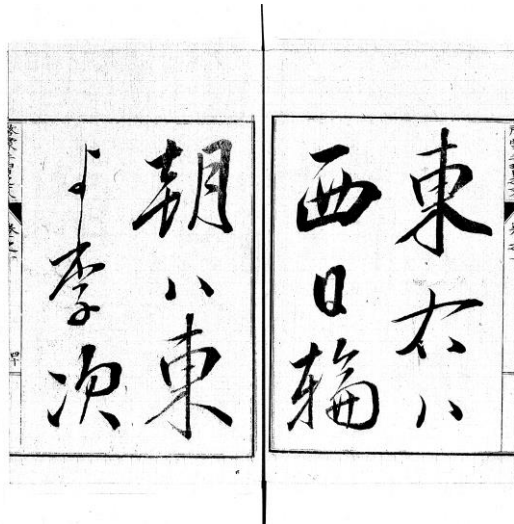 東右ハ
西日輪
朝ハ東
よ李次